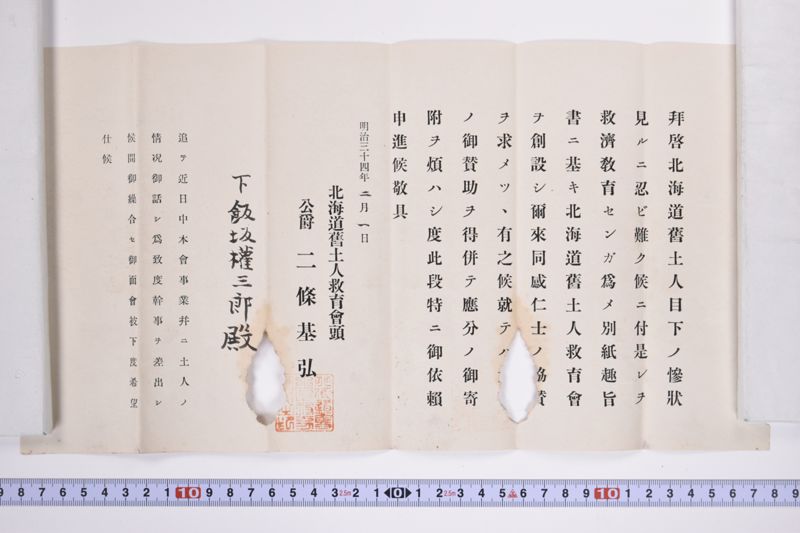 拜啓北海道舊土人目下ノ慘狀
見ルニ忍ビ難ク候ニ付是レヲ
救濟敎育センガ爲メ別紙趣旨
書ニ基キ北海道舊土人救育會
ヲ創設シ爾來同感仁士ノ協賛
ヲ求メツヽ有之候就テハ
ノ御賛助ヲ得併テ應分ノ御寄
附ヲ煩ハシ度此段特ニ御依賴
申進候敬具
明治三十四年二月一日
北海道舊土人救育會頭
公爵 二條基弘
下飯坂權三郎殿
追テ近日中本會事業幷ニ土人ノ
情况御話シ爲致度幹事ヲ差出シ
候間御繰合セ御面會被下度希望
仕候